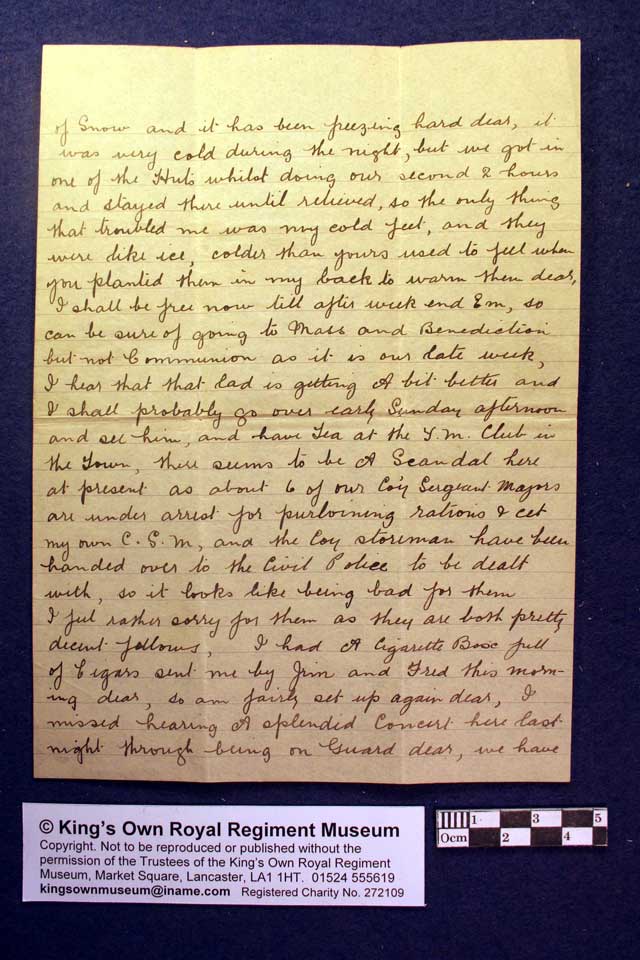 of Snow and it has been freezing hard dear, it
was very cold during the night, but we got in
one of the Huts whilst doing our second 2 hours
and stayed there until relieved, so the only thing
that troubled me was my cold feet, and they
were like ice, colder than yours used to feel when
you planted them in my back to warm them dear,
I shall be free now till after week end Em, so
can be sure of going to Mass and Benediction
but not Communion as it is our late week,
I hear that that lad is getting A bit better and
I shall probably go over early Sunday afternoon
and see him, and have Tea at the Y.M. Club in
the Town, there seems to be A Scandal here
at present as about 6 of our Co'y Sergeant Majors
are under arrest for purloining rations & cet
my own C.S.M, and the Coy storeman have been
handed over to the Civil Police to be dealt
with, so it looks like being bad for them
I feel rather sorry for them as they are both pretty
decent fellows, I had A Cigarette Box full
of Cigars sent me by Jim and Fred this morn-
ing dear, so am fairly set up again dear, I
missed hearing A splendid Concert here last
night through being on Guard dear, we have
© King's Own Royal Regiment Museum
Copyright. Not to be reproduced or published without the
permission of the Trustees of the King's Own Royal Regiment
Museum, Market Square, Lancaster, LA1 1HT. 01524 555619
kingsownmuseum@iname.com Registered Charity No. 272109
1 3 5
0cm 2 4